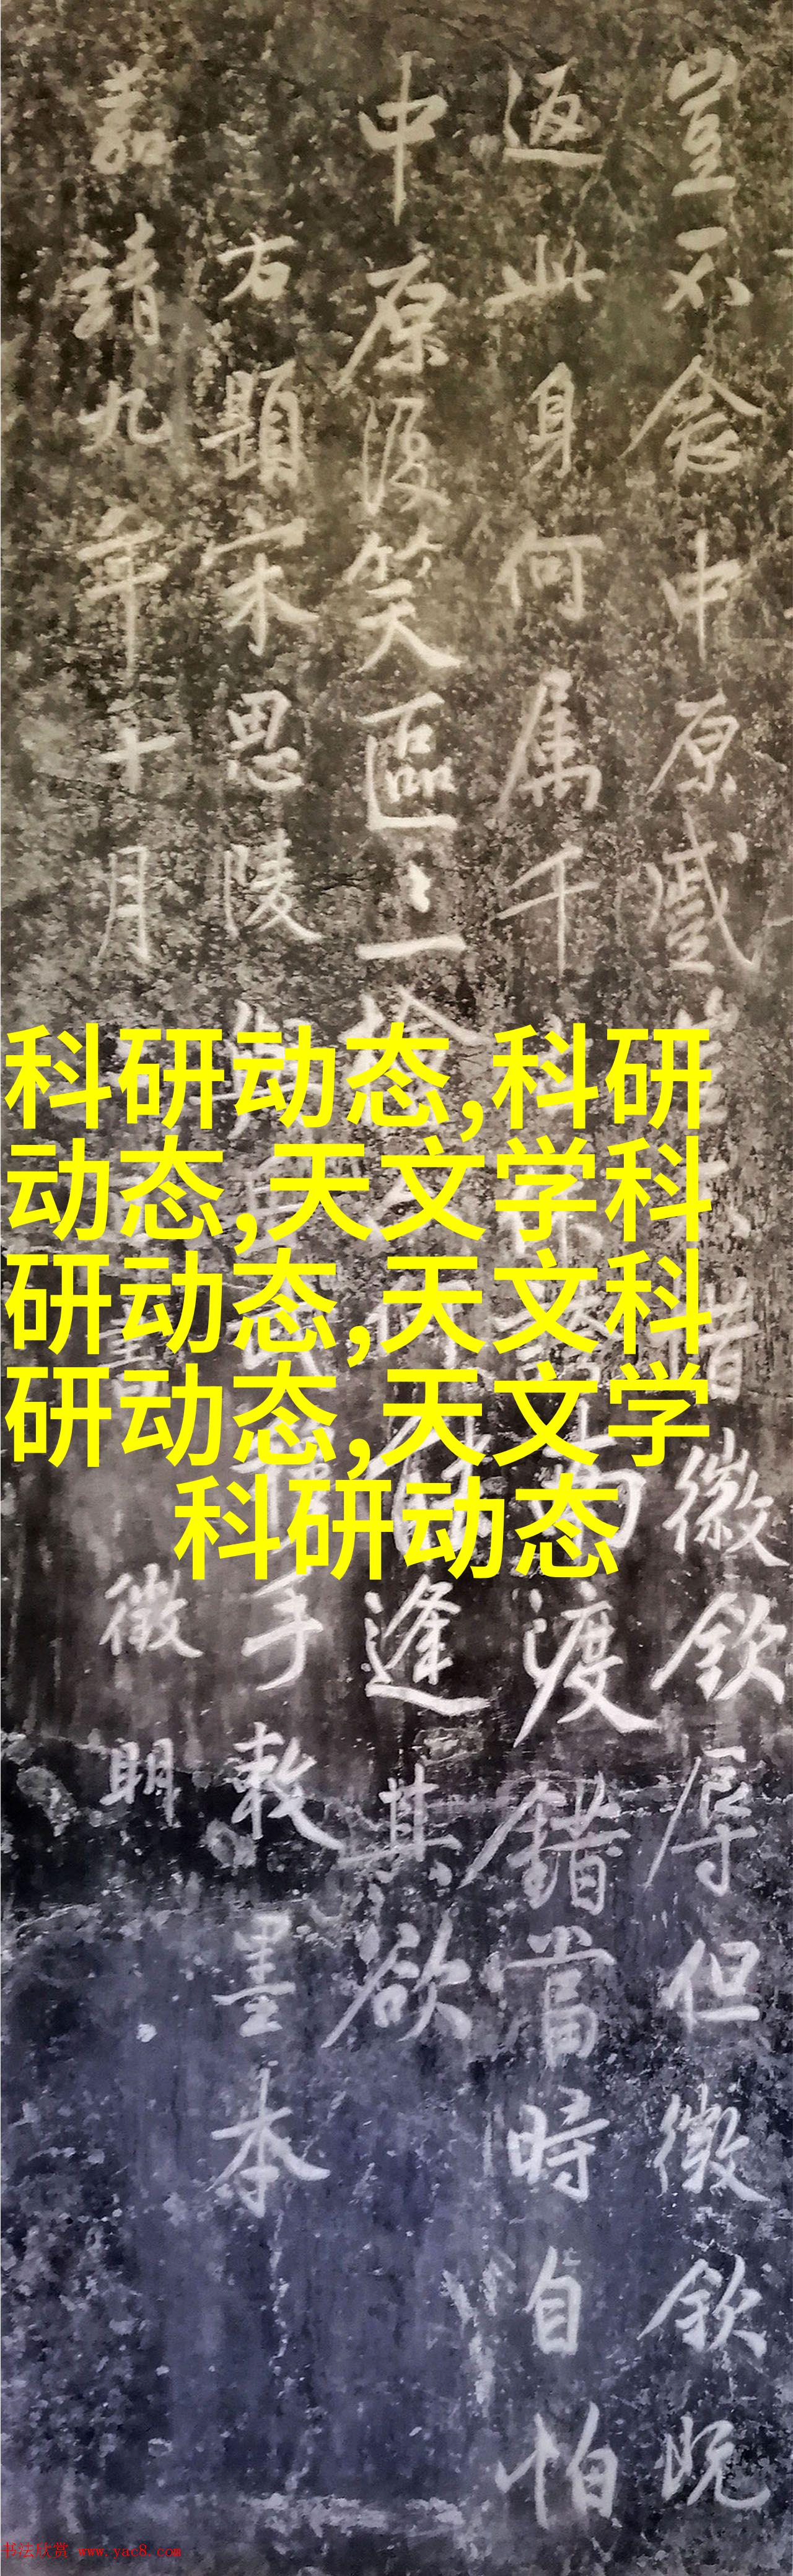 豈不念中原蹙惜徽欽辱但徽欽既
返此身何属千南渡錯當時自怕
中原復笑區〻一檜何能逢其欲
右題宋思陵手敕墨本
嘉靖九年十月書徵明
科研动态,科研
动态,天文学科
研动态,天文科
研动态,天文学
科研动态
书法欣赏 www.yac8.com